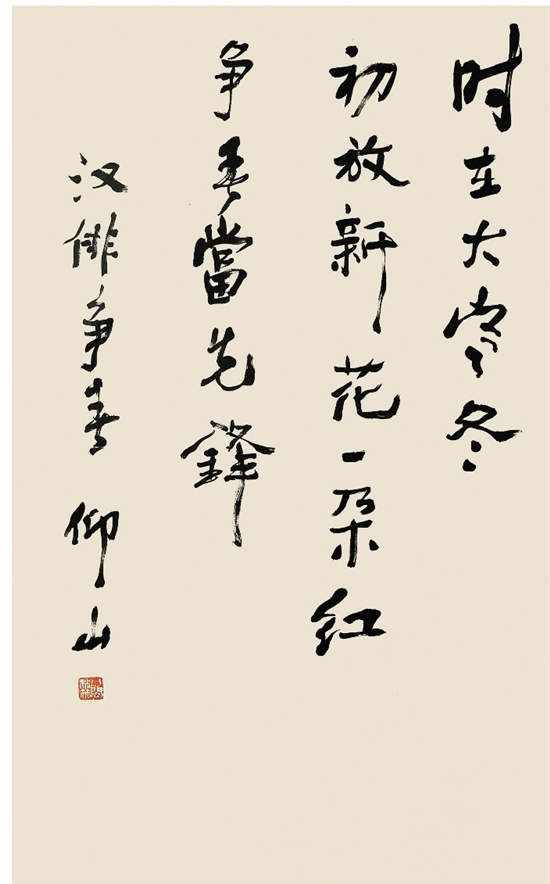 时在大寒冬
初放新花一朵红
争春當先鋒
汉俳争春 仰山